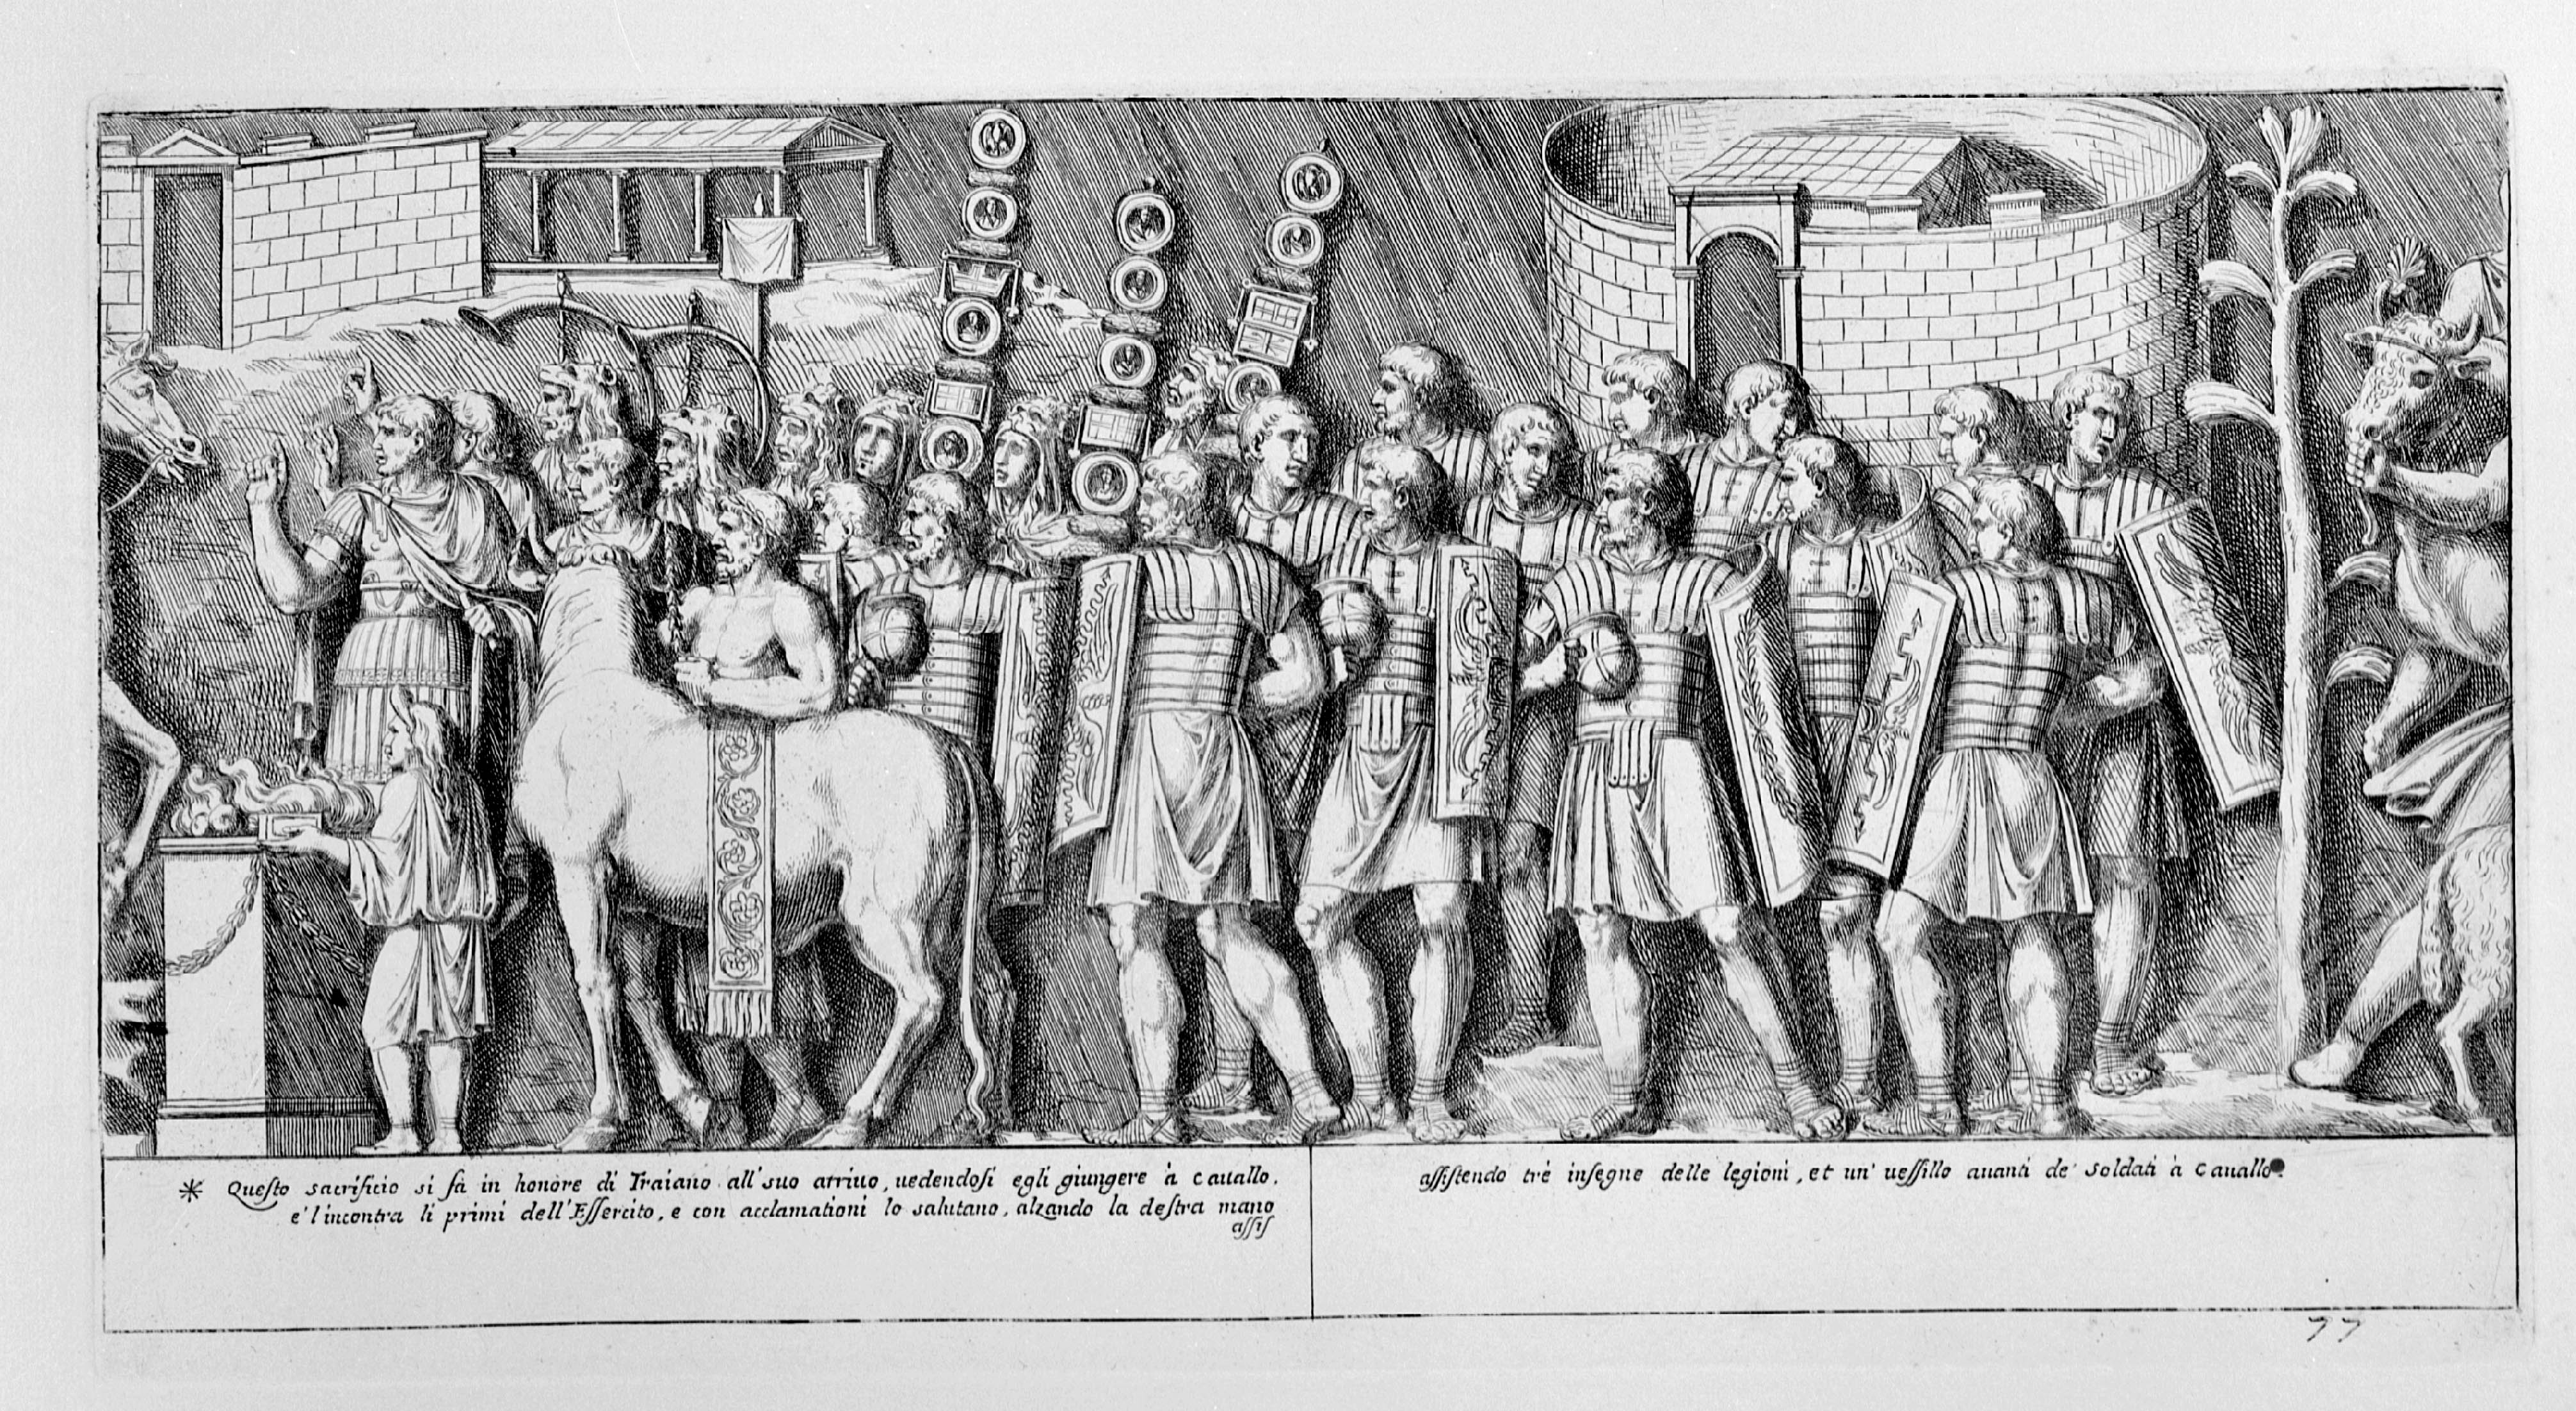 * Questo sacrificio si fà in honore di Traiano all'suo arriuo, uedendosi egli giungere à cauallo,
e'l'incontra li primi dell'Essercito, e con acclamationi lo salutano, alzando la destra mano
assis
assistendo trè insegne delle legioni, et un' uessillo auanti de' soldati à cauallo.
77